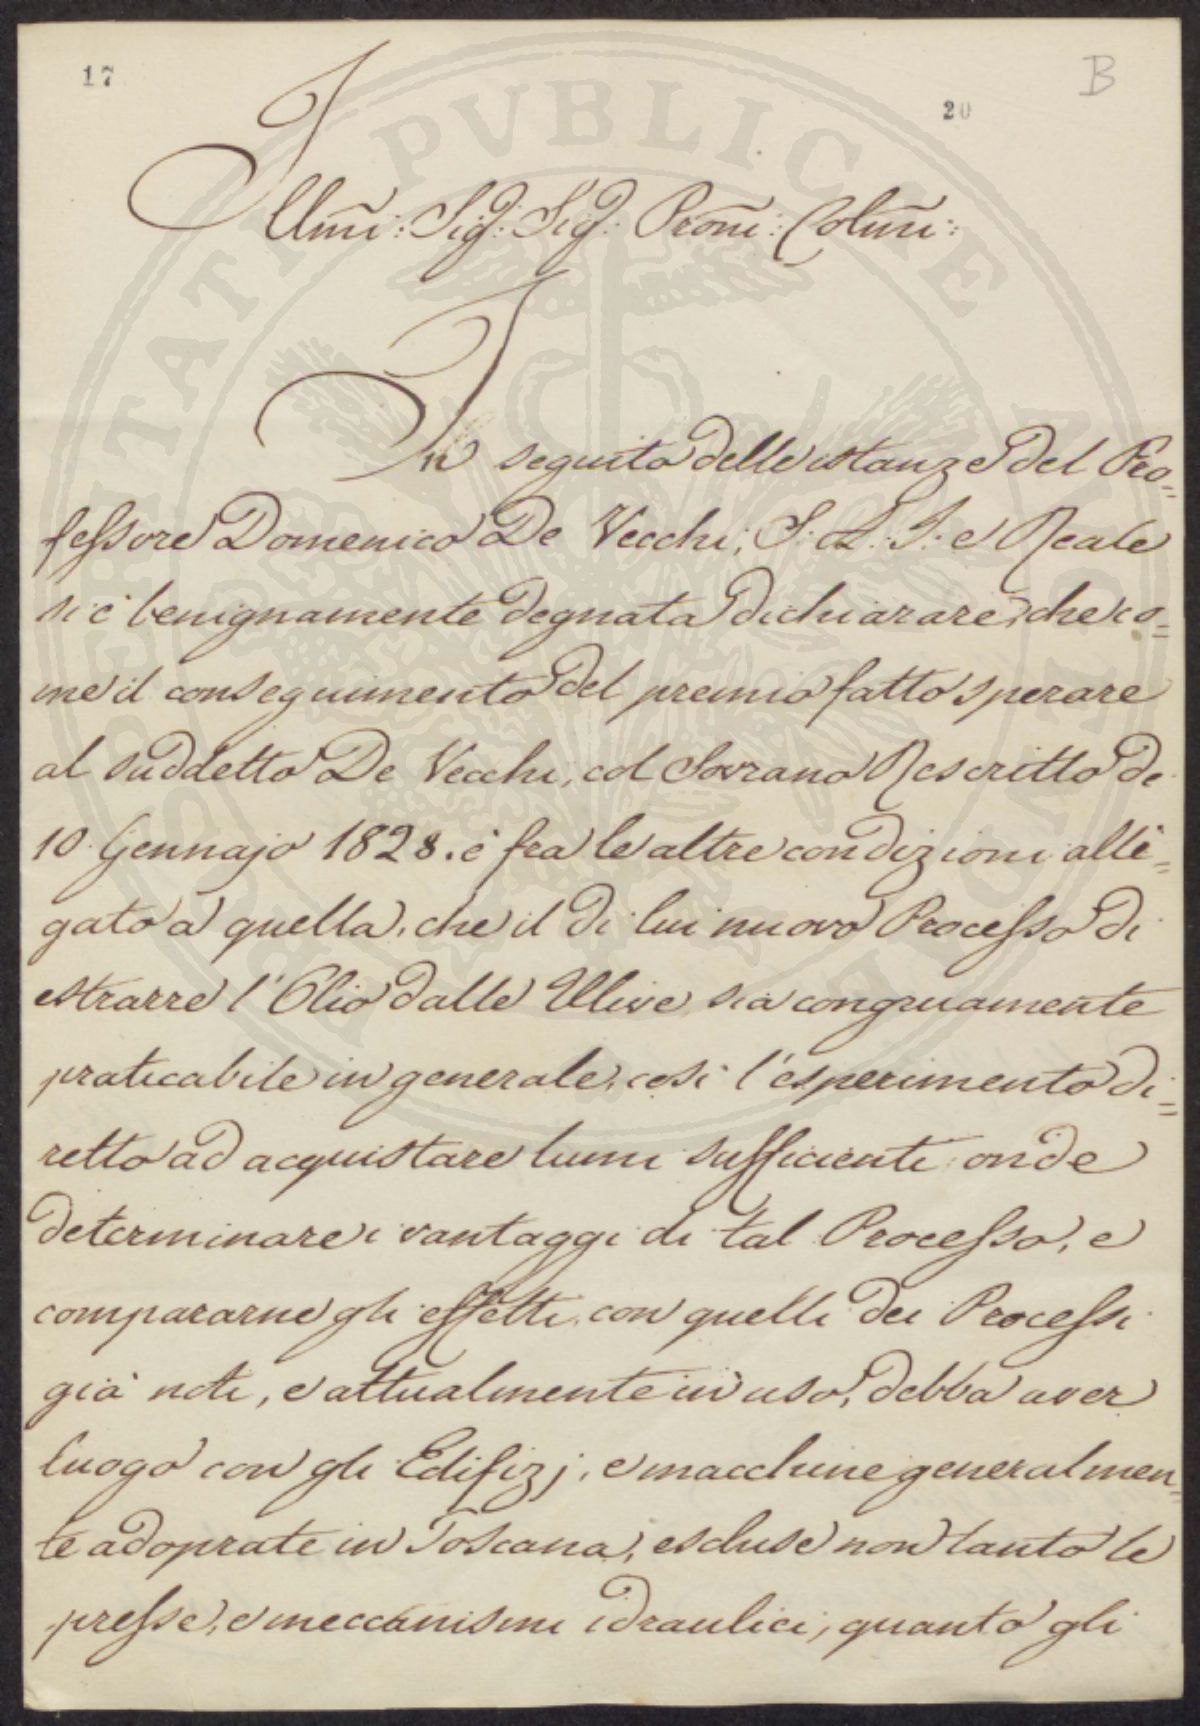 17
B
20
Illmi: Sig: Sig: Proni: Colmi:
In seguito delle istanze del Pro=
fessore Domenico De Vecchi, S. A. I. e Reale
si è benignamente degnata dichiarare, che co=
me il conseguimento del premio fatto sperare
al suddetto De Vecchi, col Sovrano Rescritto de
10. Gennajo 1828. è fra le altre condizioni alle=
gato a quella, che il di lui nuovo Processo di
estrarre l'Olio dalle Ulive sia congruamente
praticabile in generale, così l'esperimento di=
retto ad acquistare lumi sufficienti onde
determinare i vantaggi di tal Processo, e
compararne gli effetti con quelli dei Processi
già noti, e attualmente in uso, debba aver
luogo con gli Edifizj, e macchine generalmen=
te adoprate in Toscana, escluse non tanto le
presse, e meccanismi idraulici, quanto gli
PROSPERITATI PVBLICAE AVGENDAE